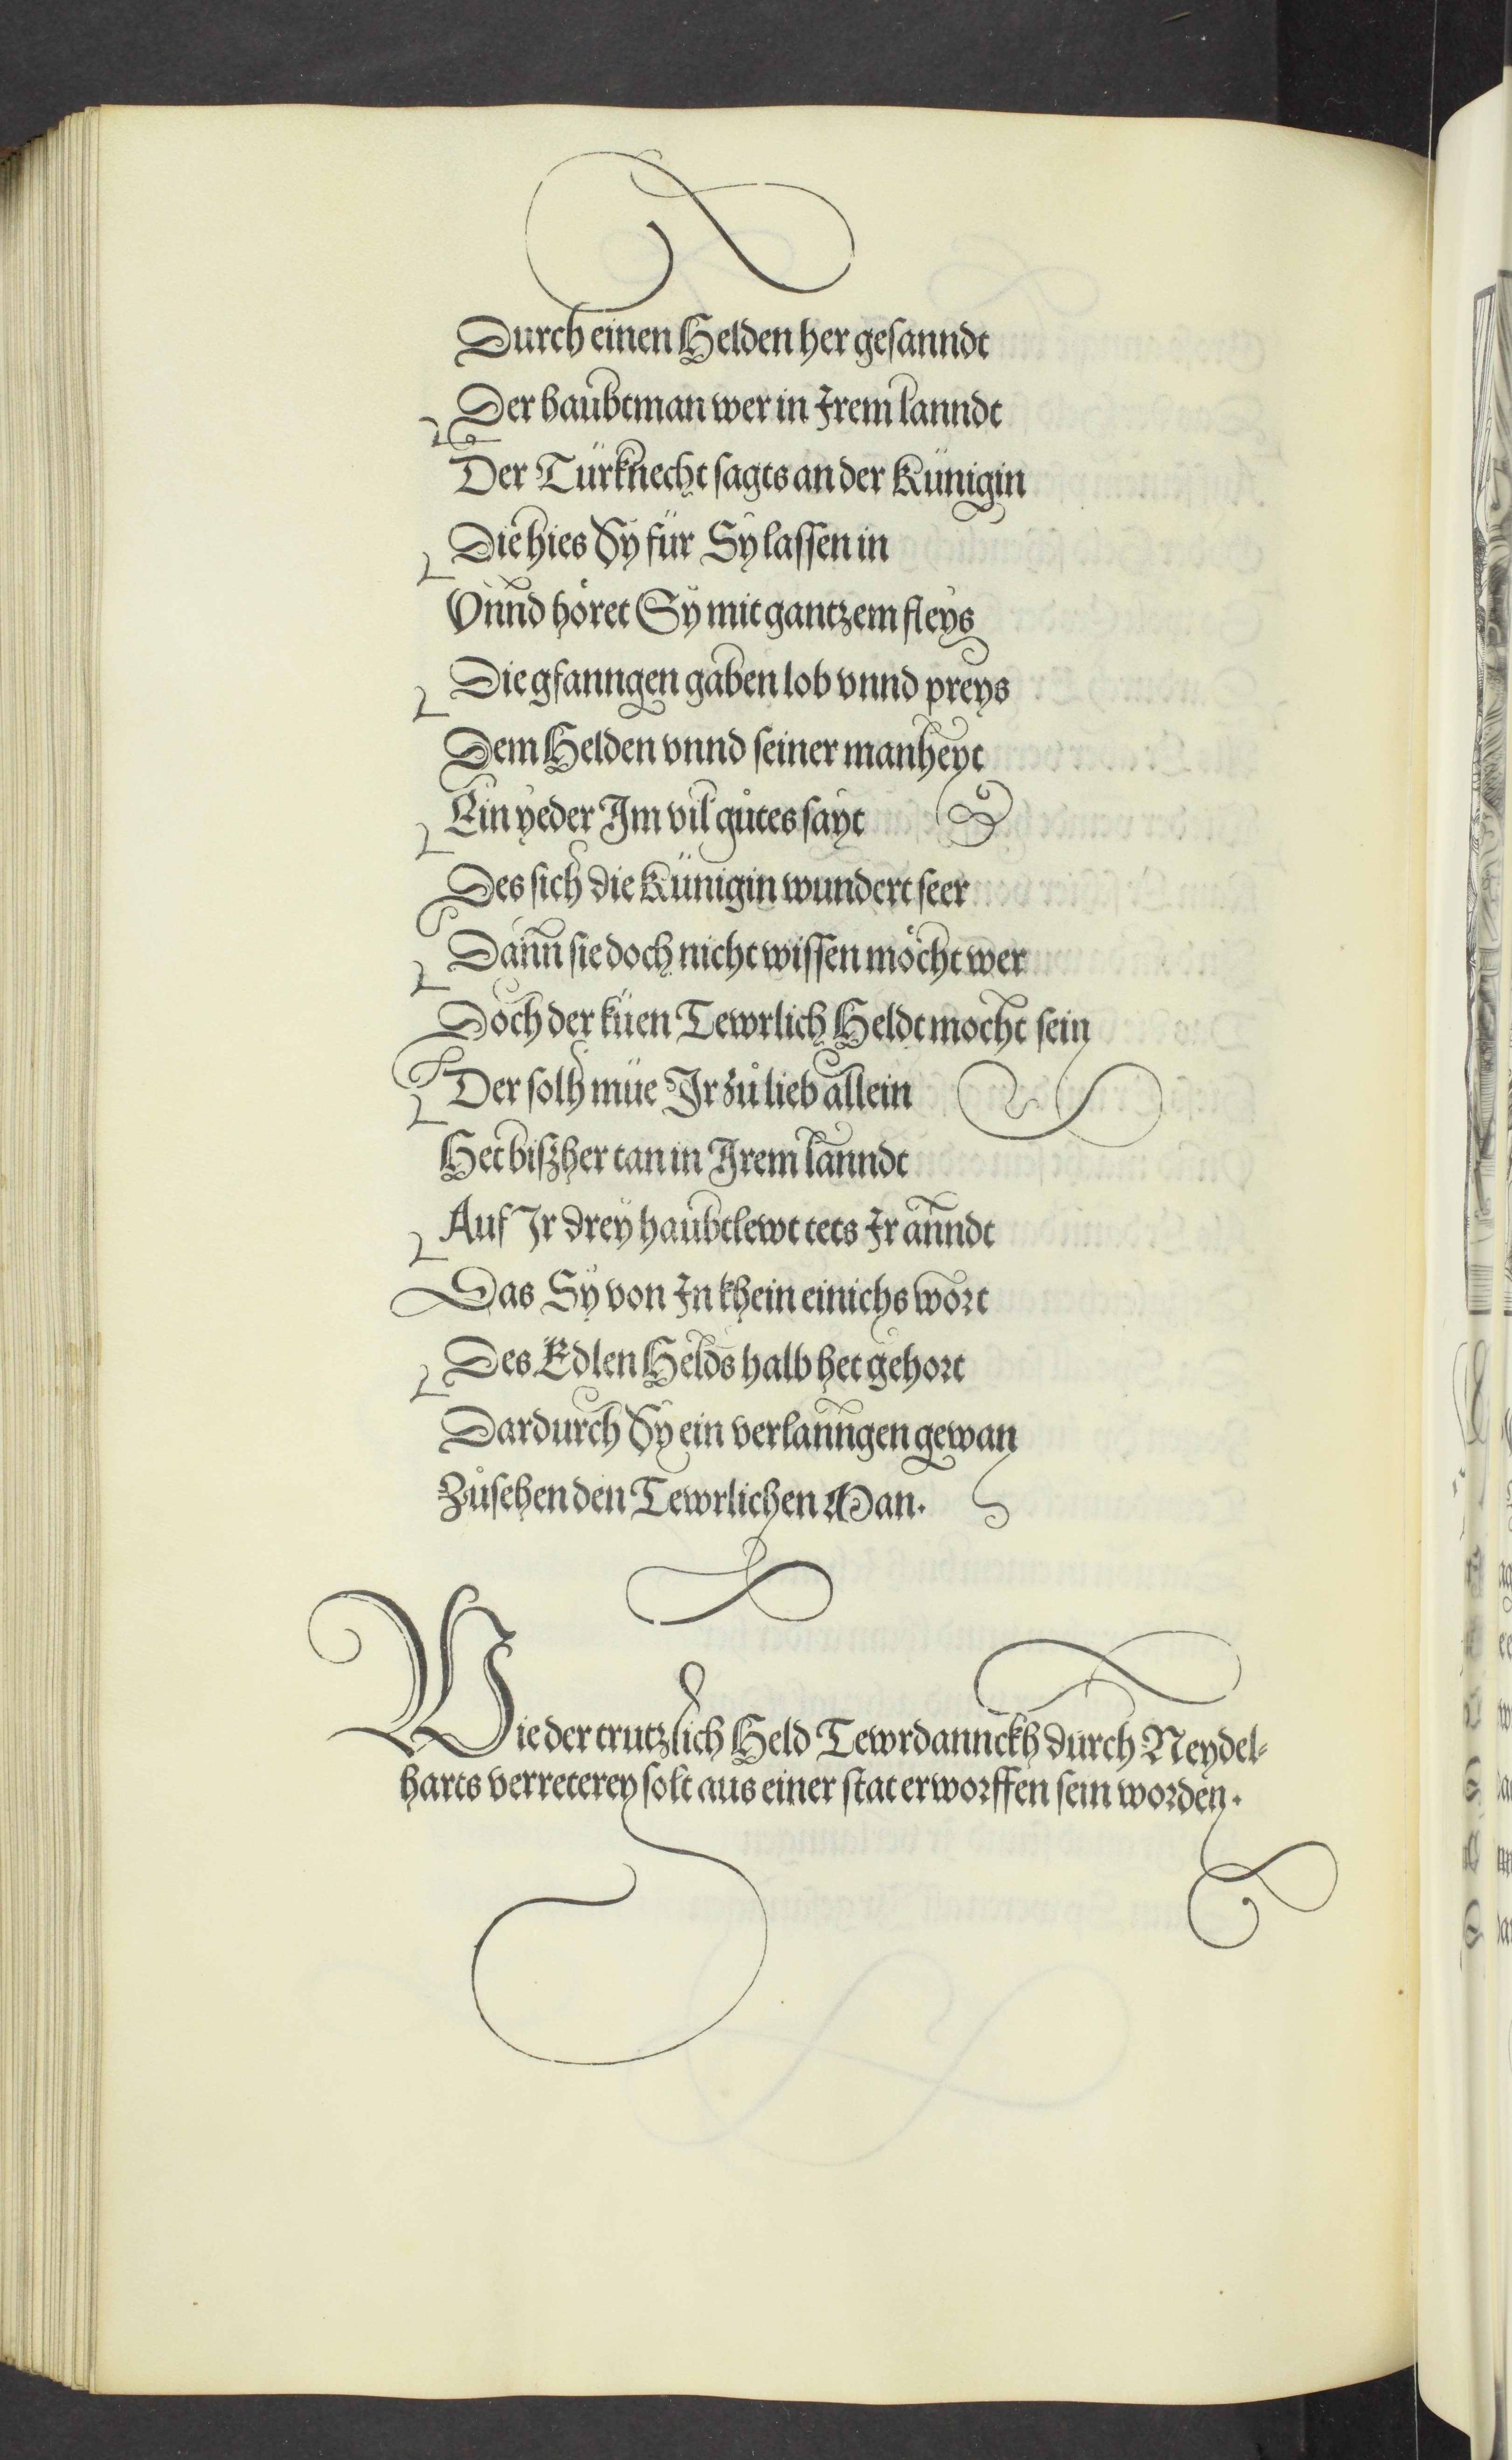 Durch einen Helden her gesanndt
Der haubtman wer in Irem lanndt
Der Türknecht sagts an der Künigin
Die hies Sy für Sy lassen in
Vnnd höret Sy mit gantzem fleys
Die gfanngen gaben lob vnnd preys
Dem Helden vnnd seiner manheyt
Ein yeder Im vil gůtes sayt
Des sich die Künigin wundert seer
Dann sie doch nicht wissen möcht wer
Doch der küen Tewrlich Heldt mocht sein
Der solh müe Ir zů lieb allein
Het biszher tan in Irem lanndt
Auf Ir drey haubtlewt tets Ir anndt
Das Sy von In khein einichs wort
Des Edlen Helds halb het gehort
Dardurch Sy ein verlanngen gewan
Zůsehen den Tewrlichen Man.
Wie der trutzlich Held Tewrdannckh durch Neydel-
harts verreterey solt aus einer stat erworffen sein worden.